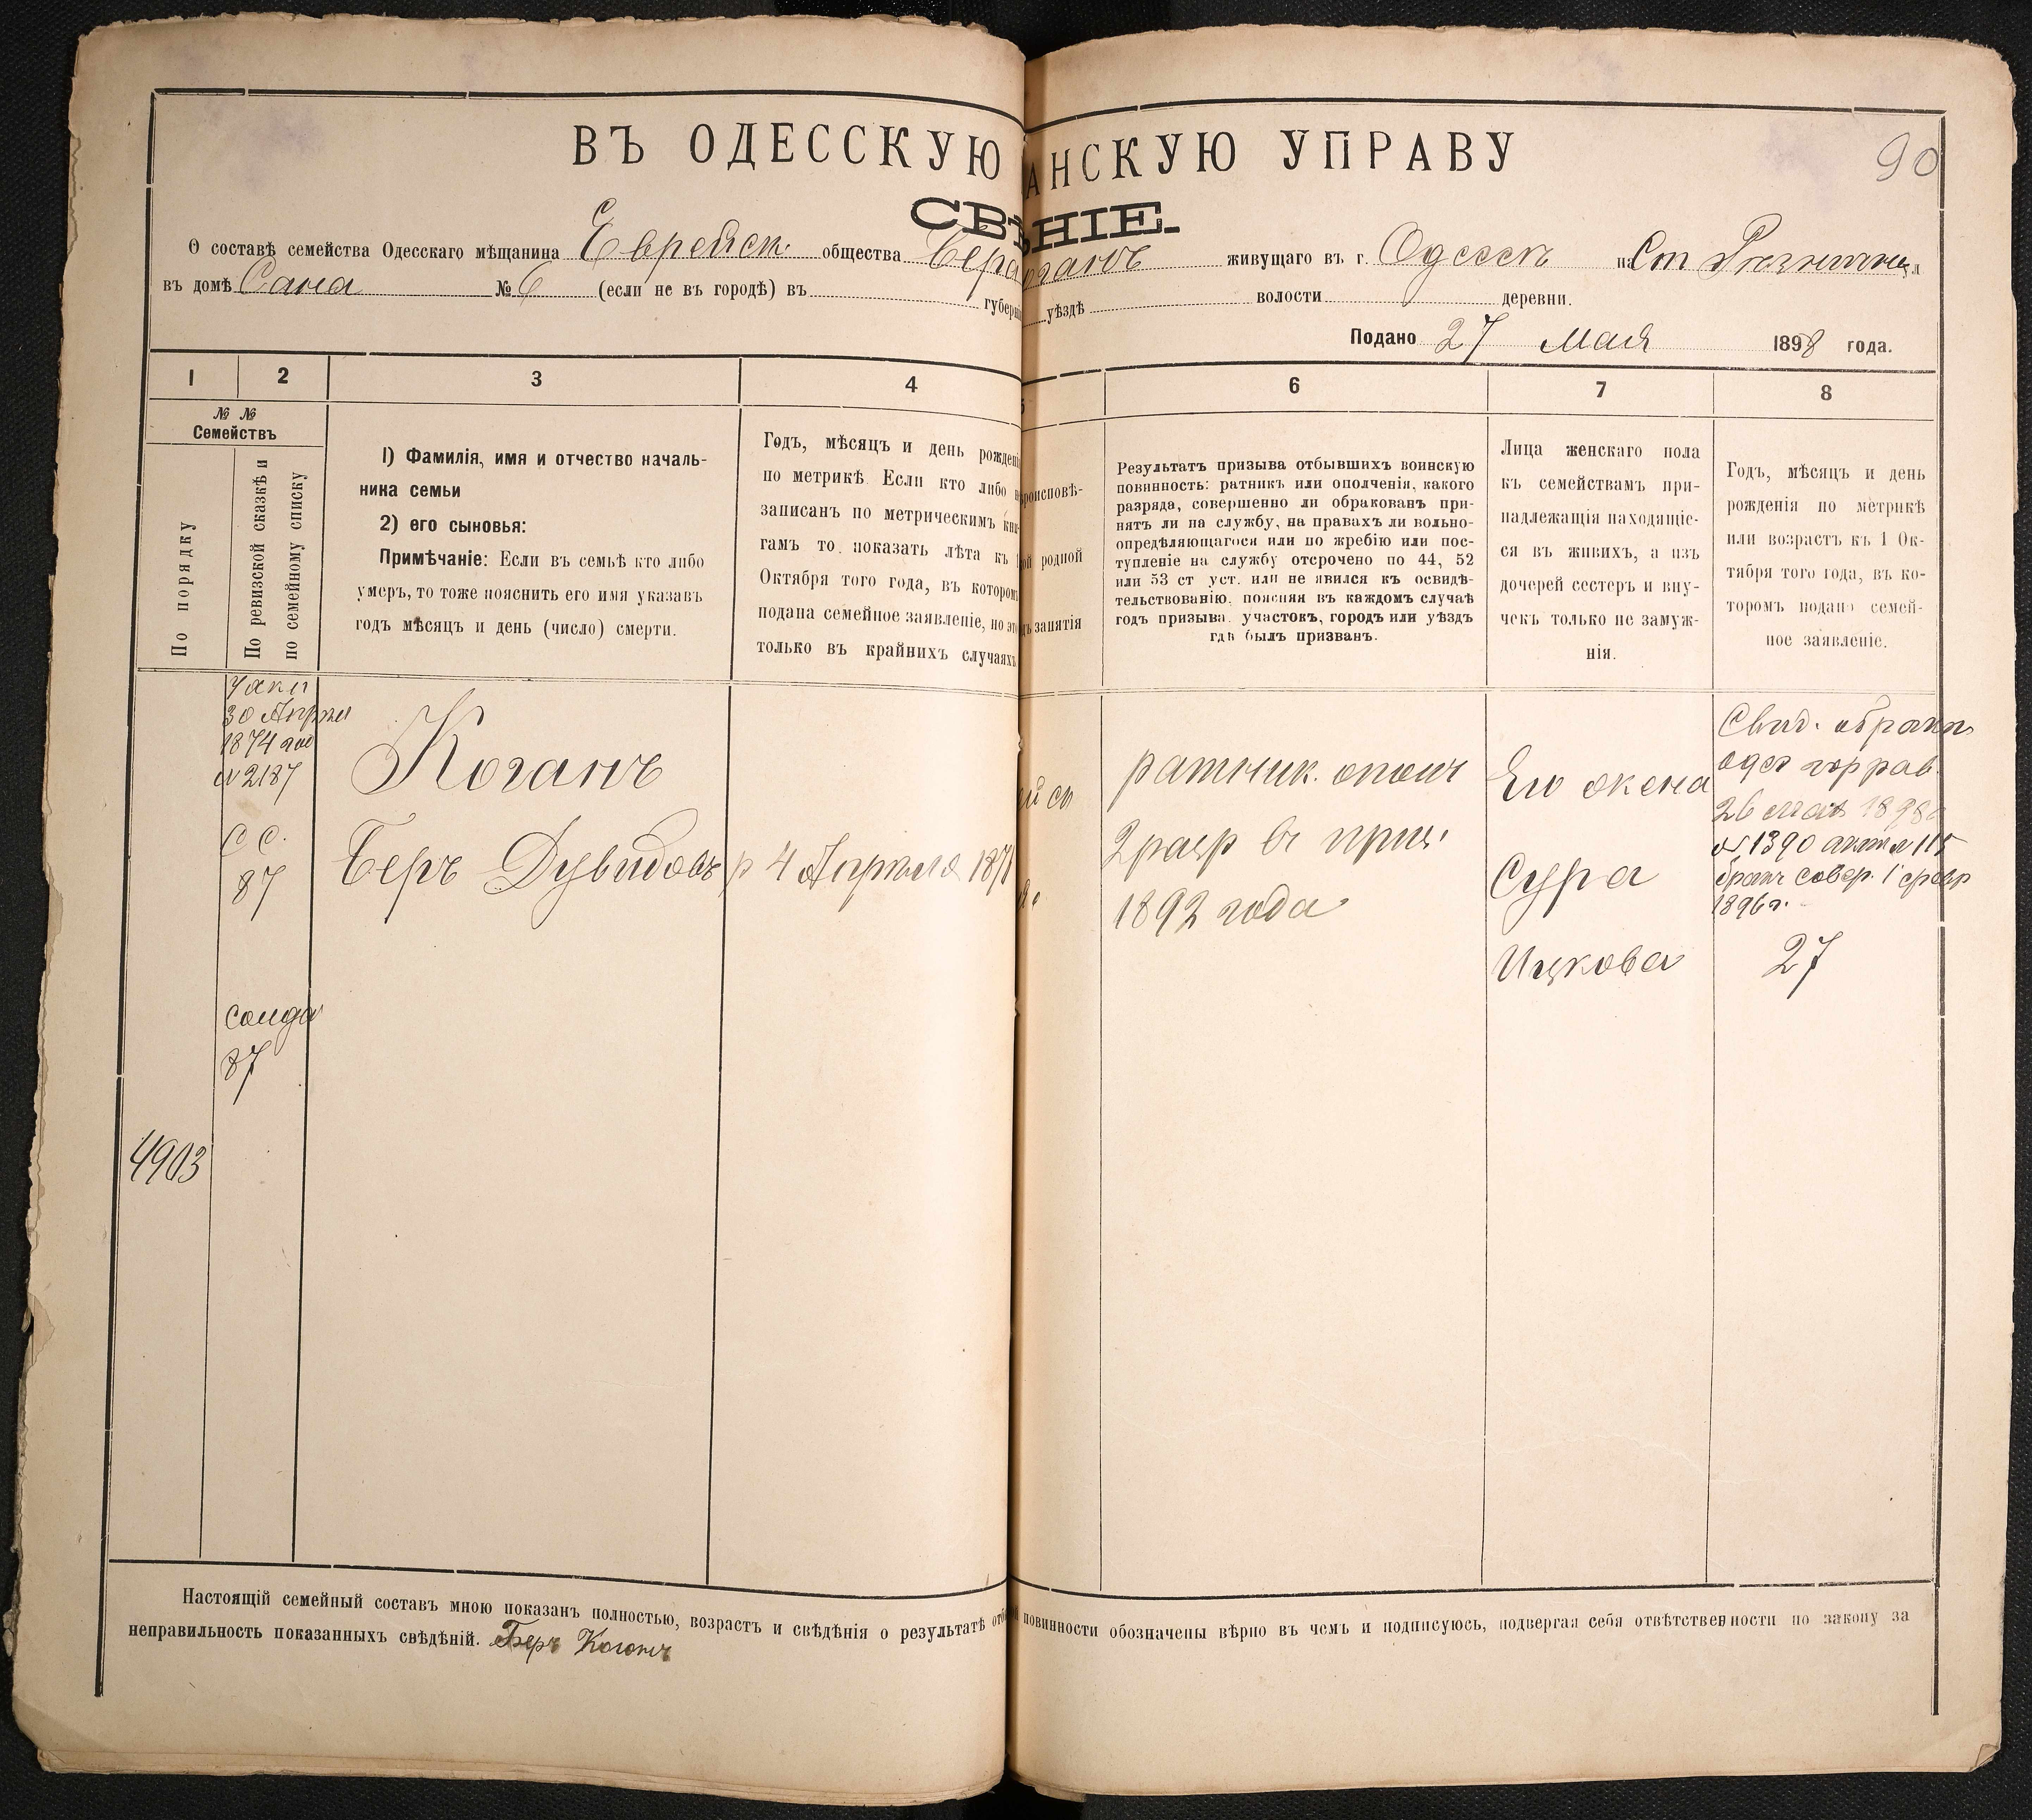 ВЪ ОДЕССКУЮ
АНСКУЮ УПРАВУ
90
СВѢ
НІЕ.
О составѣ семейства Одесскаго мѣщанина Еврейск. общества Бера
Коганъ живущаго въ г. Одессѣ на Ст Резничн ул
въ домѣ Сана № 6 (если не въ городѣ) въ губерні
уѣздѣ волости деревни.
Подано 27 Мая 1898 года.
1 2 3 4
5 6 7 8
№ №
Семействъ
По порядку
По ревизской сказкѣ и
по семейному списку
1) Фамилія, имя и отчество началь-
ника семьи
2) его сыновья:
Примѣчаніе: Если въ семьѣ кто либо
умеръ, то тоже пояснить его имя указавъ
годъ мѣсяцъ и день (число) смерти.
Годъ, мѣсяцъ и день рожденія
по метрикѣ. Если кто либо н
записанъ по метрическимъ кни-
гамъ то. показать лѣта къ 1
Октября того года, въ котором
подана семейное заявленіе, но это
только въ крайнихъ случаяхъ
роисповѣ-
ой родной
ъ занятія
Результатъ призыва отбывшихъ воинскую
повинность: ратникъ или ополченія, какого
разряда, совершенно ли обракованъ при-
нятъ ли на службу, на правахъ ли вольно-
опредѣляющагося или по жребію или пос-
тупленіе на службу отсрочено по 44, 52
или 53 ст уст. или не явился къ освидѣ-
тельствованію. поясняя въ каждомъ случаѣ
годъ призыва. участокъ, городъ или уѣздъ
гдѣ былъ призванъ.
Лица женскаго пола
къ семействамъ при-
надлежащія находящіе-
ся въ живихъ, а изъ
дочерей сестеръ и вну-
чекъ только не замуж-
нія.
Годъ, мѣсяцъ и день
рожденія по метрикѣ
или возрастъ къ 1 Ок-
тября того года, въ ко-
торомъ подано семей-
ное заявленіе.
30 Апреля
1874 год
№ 2187
С С.
87
87
4903
Коганъ
Беръ Дувидовъ
р 4 Апреля 1871
ратник. ополч
2 разр въ приз.
1892 года
Его жена
Сура
Ицкова
Свид. о брак
одес гор рав.
26 мая 1898
№ 1390 акт № 115
бракъ совер. 1 февр
1896 г.
27
Настоящій семейный составъ мною показанъ полностью, возрастъ и свѣдѣнія о результатѣ отб
повинности обозначены вѣрно въ чемъ и подписуюсь, подвергая себя отвѣтственности по закону за
неправильность показанныхъ свѣдѣній. Беръ Коганъ